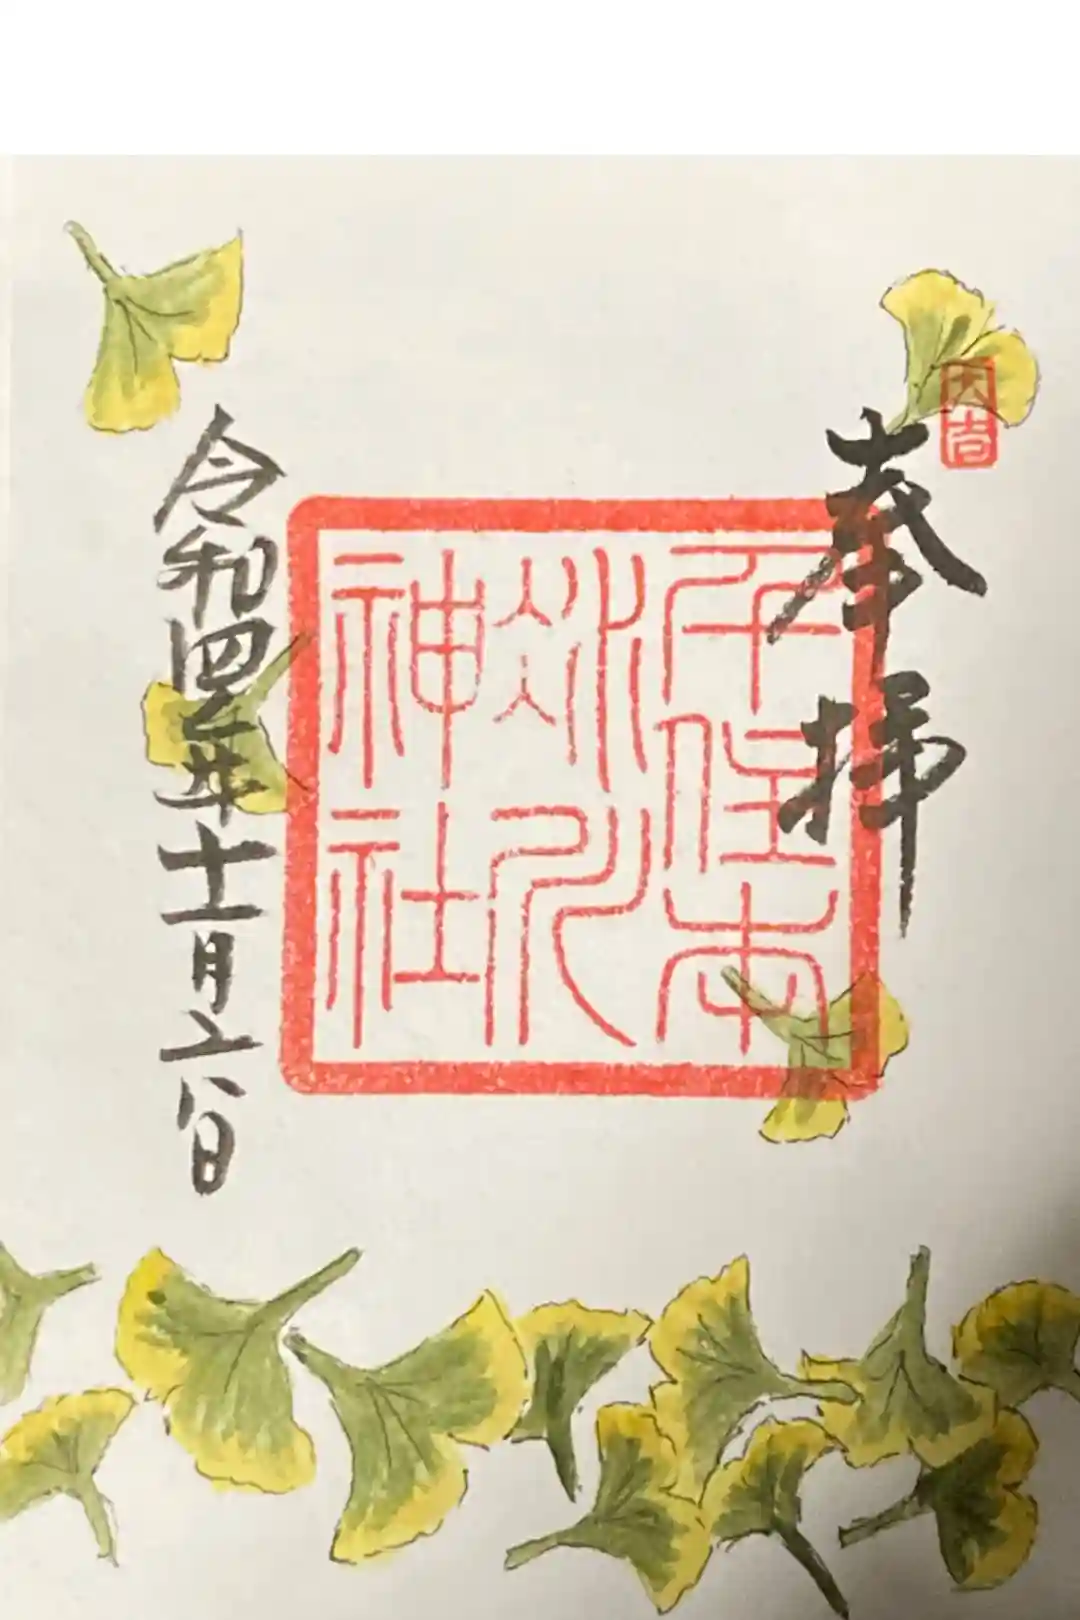 奉拝
千住本
氷川
神社
令和四年十一月六日